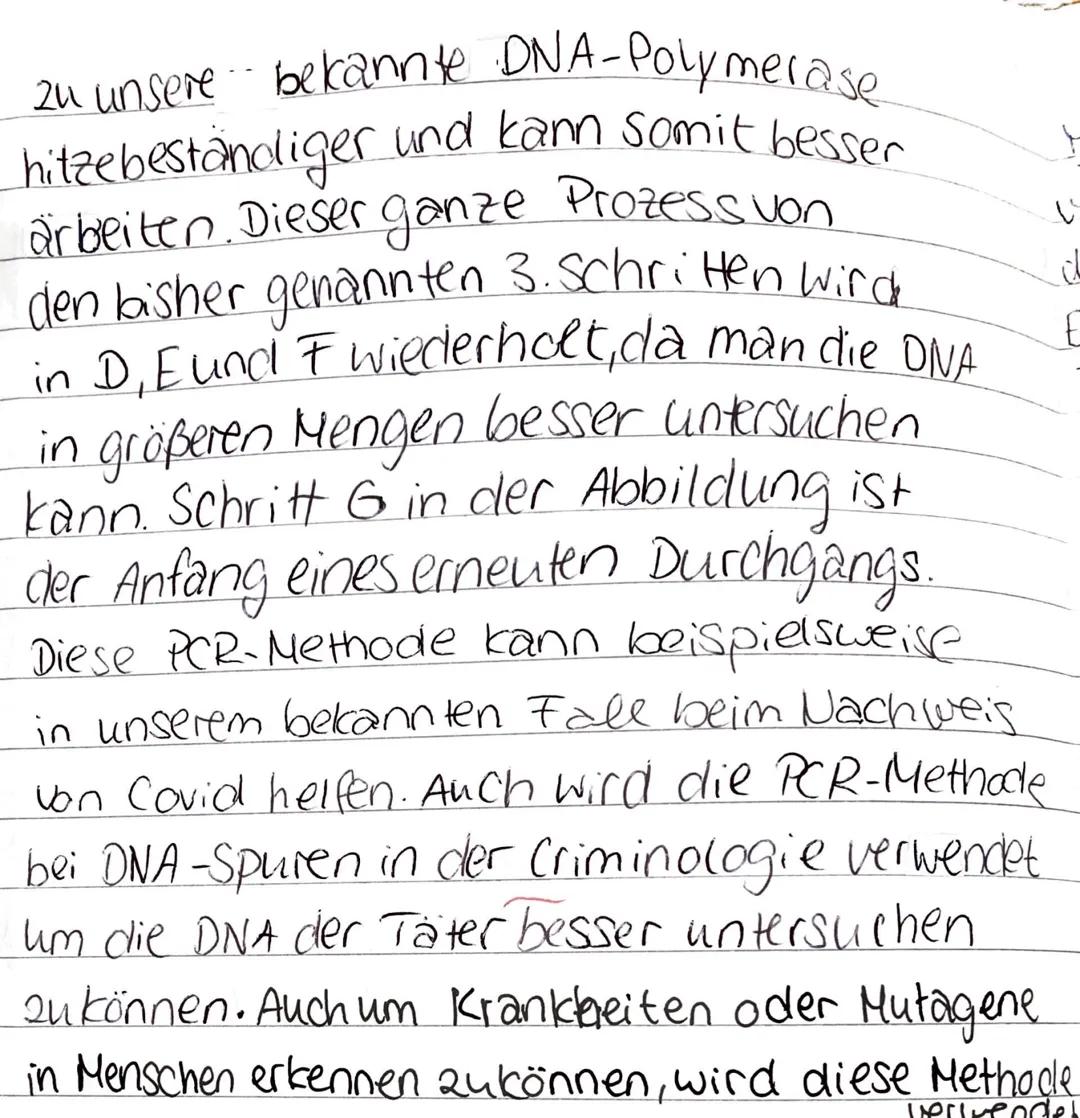 zu unsere bekannte DNA-Polymerase
hitzebeständiger und kann somit besser
arbeiten. Dieser ganze Prozess von
den bisher genannten 3. Schritten wird
in D, E und F wiederholt, da man die DNA
in größeren Mengen besser untersuchen
kann. Schritt G in der Abbildung ist
der Anfang eines erneuten Durchgangs.
Diese PCR-Methode kann beispielsweise
in unserem bekannten Fall beim Nachweis
von Covid helfen. Auch wird die PCR-Methode
bei DNA-Spuren in der Criminologie verwendet
um die DNA der Täter besser untersuchen
zu können. Auch um Krankheiten oder Mutagene
in Menschen erkennen zu können, wird diese Methode
verwendet